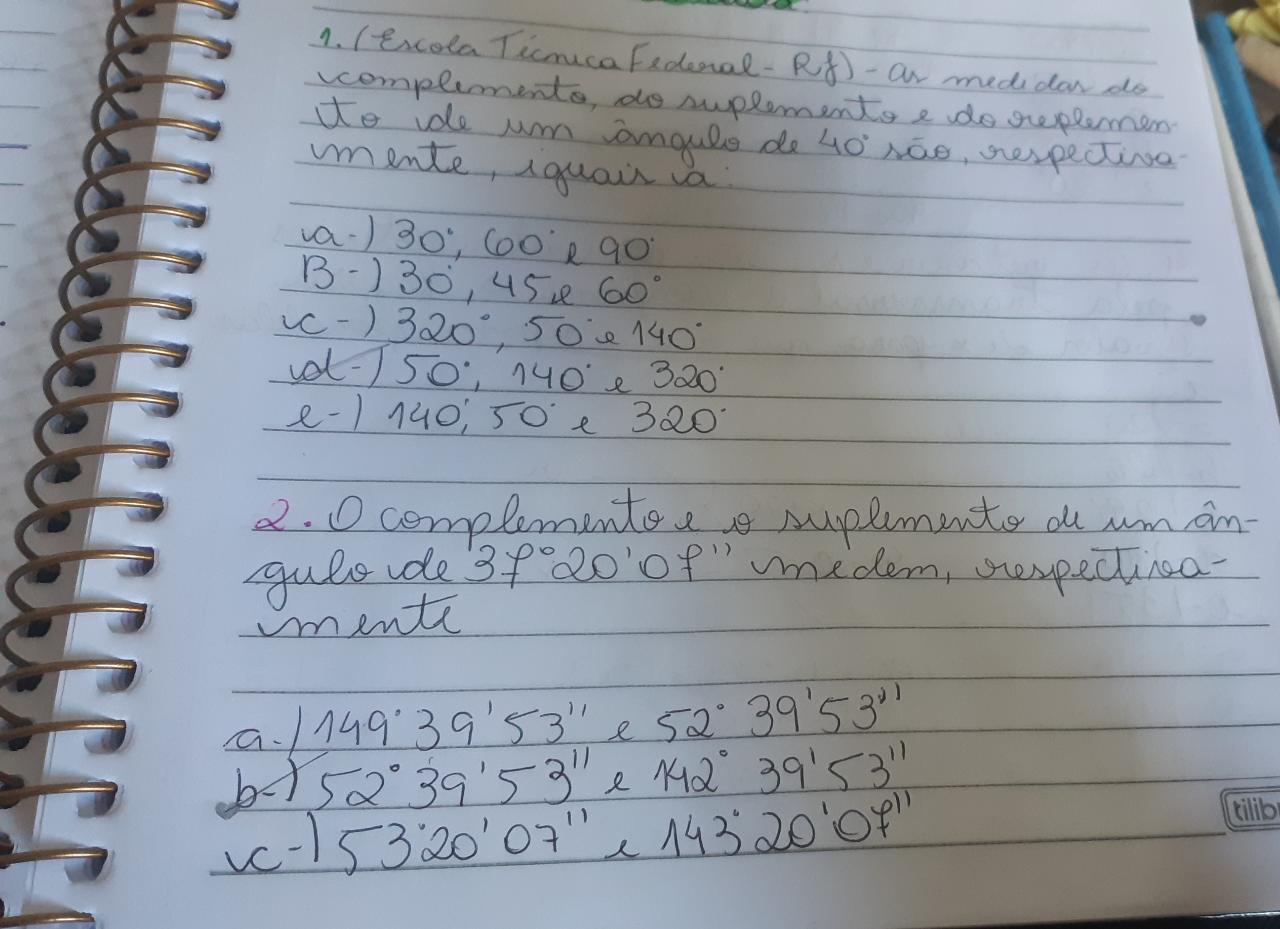 1. (Escola Técnica Federal - RJ) - as medidas do
complemento, do suplemento e do replemen-
to de um ângulo de 40° são, respectiva-
mente, iguais a:
a-) 30°, 60° e 90°
B-) 30°, 45 e 60°
c-) 320°, 50° e 140°
d-) 50°, 140° e 320°
e-) 140°, 50° e 320°
2. O complemento e o suplemento de um ân-
gulo de 37° 20' 07" medem, respectiva-
mente
a-) 149° 39' 53" e 52° 39' 53"
b-) 52° 39' 53" e 142° 39' 53"
c-) 53° 20' 07" e 143° 20' 07"